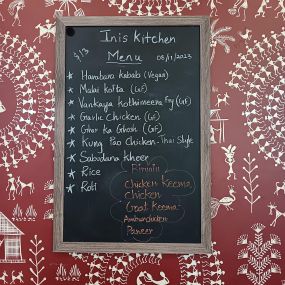 Inis Kitchen
$13
Menu
08/11/2023
* Harabara Kabab (Vegan)
* Malai Kofta (GF)
* Vankaya Kothimeera Fry (GF)
* Garlic Chicken (GF)
* Ghar Ka Ghosh (GF)
* Kung Pao Chicken - Thai Style
* Sabudana Kheer
* Rice
* Roti
Biryani
Chicken Keema
Chicken
Goat Keema
Amburchicken
Paneer